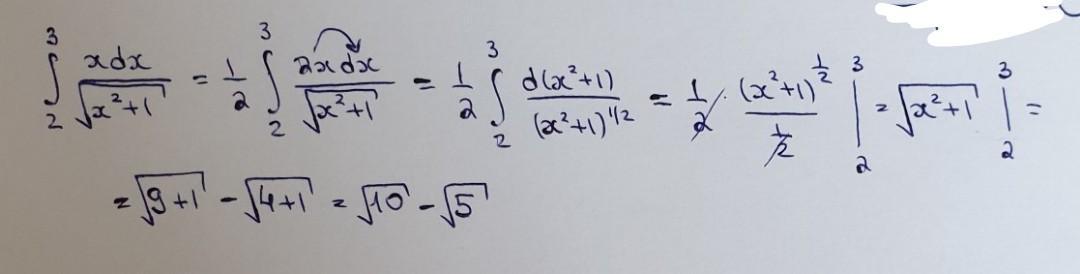 ∫₂³ xdx/√(x²+1) = 1/2 ∫₂³ 2xdx/√(x²+1) = 1/2 ∫₂³ d(x²+1)/(x²+1)^(1/2) = 1/2 · (x²+1)^(1/2)/(1/2) |₂³ = √(x²+1) |₂³ =
= √(9+1) - √(4+1) = √10 - √5